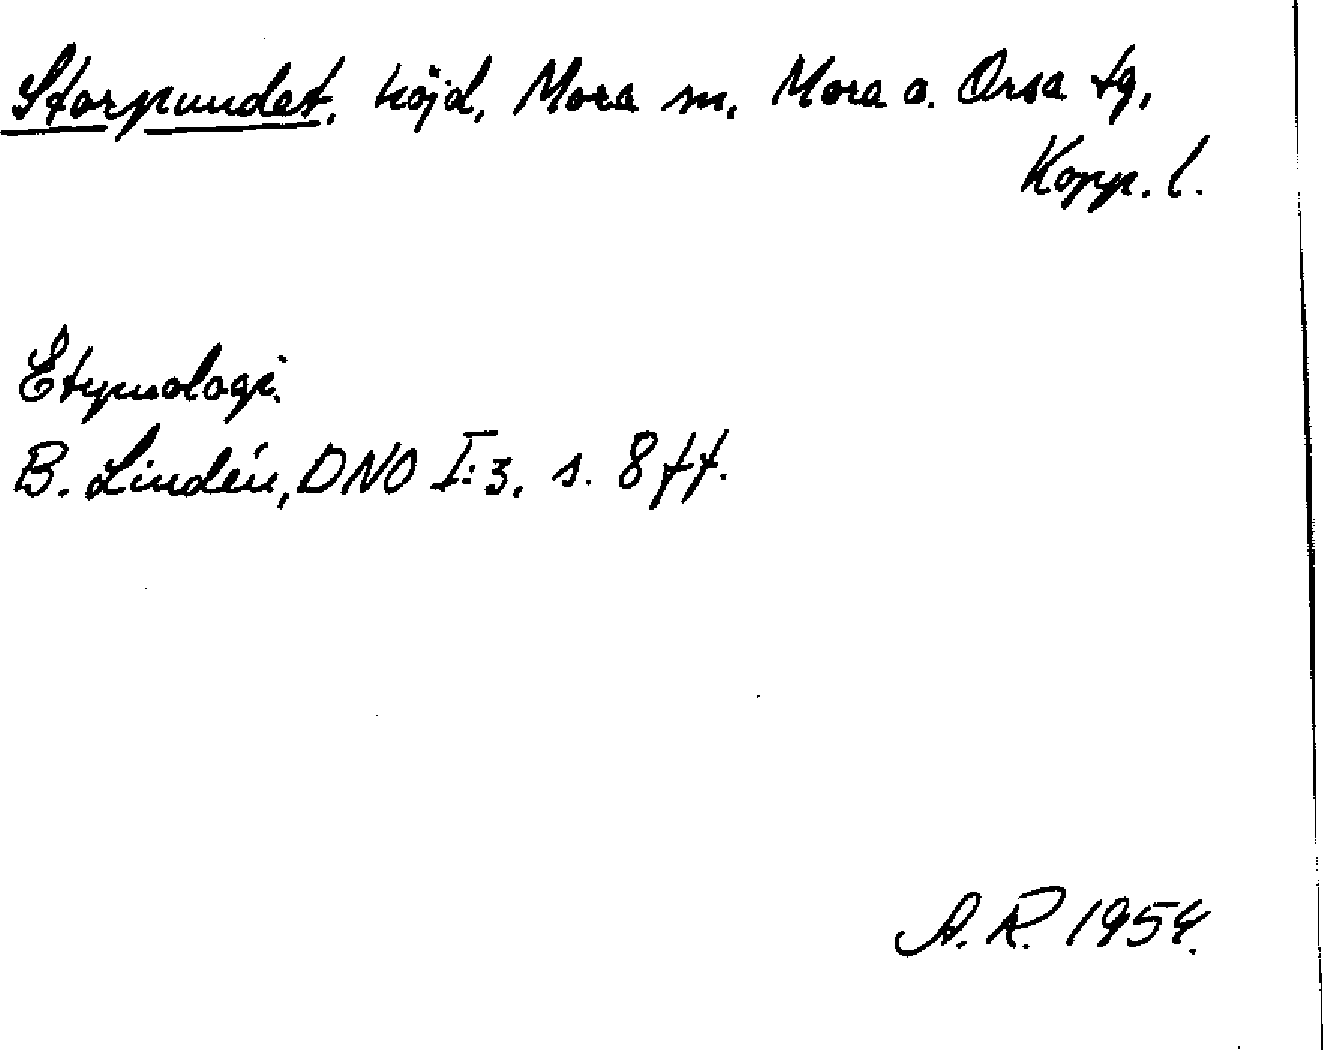 Storpundet, höjd, Mora sn, Mora o. Orsa tg,
Kopp. l.
Etymologi.
B. Lindén, DNO I:3, s. 8 ff.
A. R. 1954.